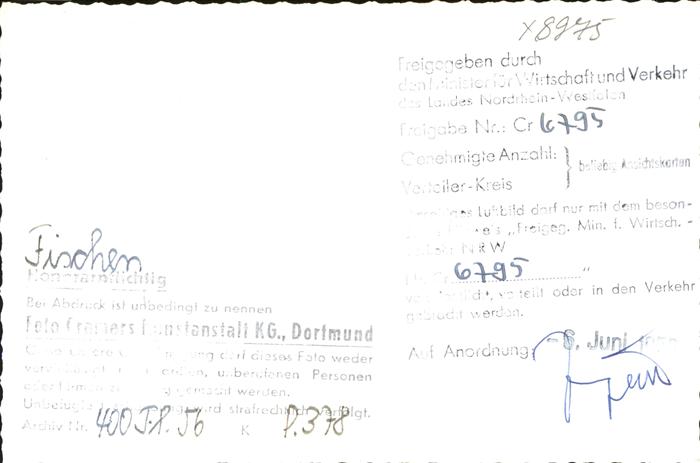 x8975
Freigegeben durch
den Minister für Wirtschaft und Verkehr
des Landes Nordrhein-Westfalen
Freigabe Nr.: Cr 6795
Genehmigte Anzahl:
beliebig Ansichtskarten
Verteiler-Kreis
Luftbild darf nur mit dem beson-
„Freigeg. Min. f. Wirtsch. -
NRW
Cr 6795 "
verteilt oder in den Verkehr
gebracht werden.
Auf Anordnung
6. Juni
Fischen
Honorarpflichtig
Bei Abdruck ist unbedingt zu nennen
Foto Cramers Kunstanstalt KG., Dortmund
Ohne unsere darf dieses Foto weder
unberufenen Personen
gemacht werden.
wird strafrechtlich verfolgt.
Archiv Nr. 400 K P.378